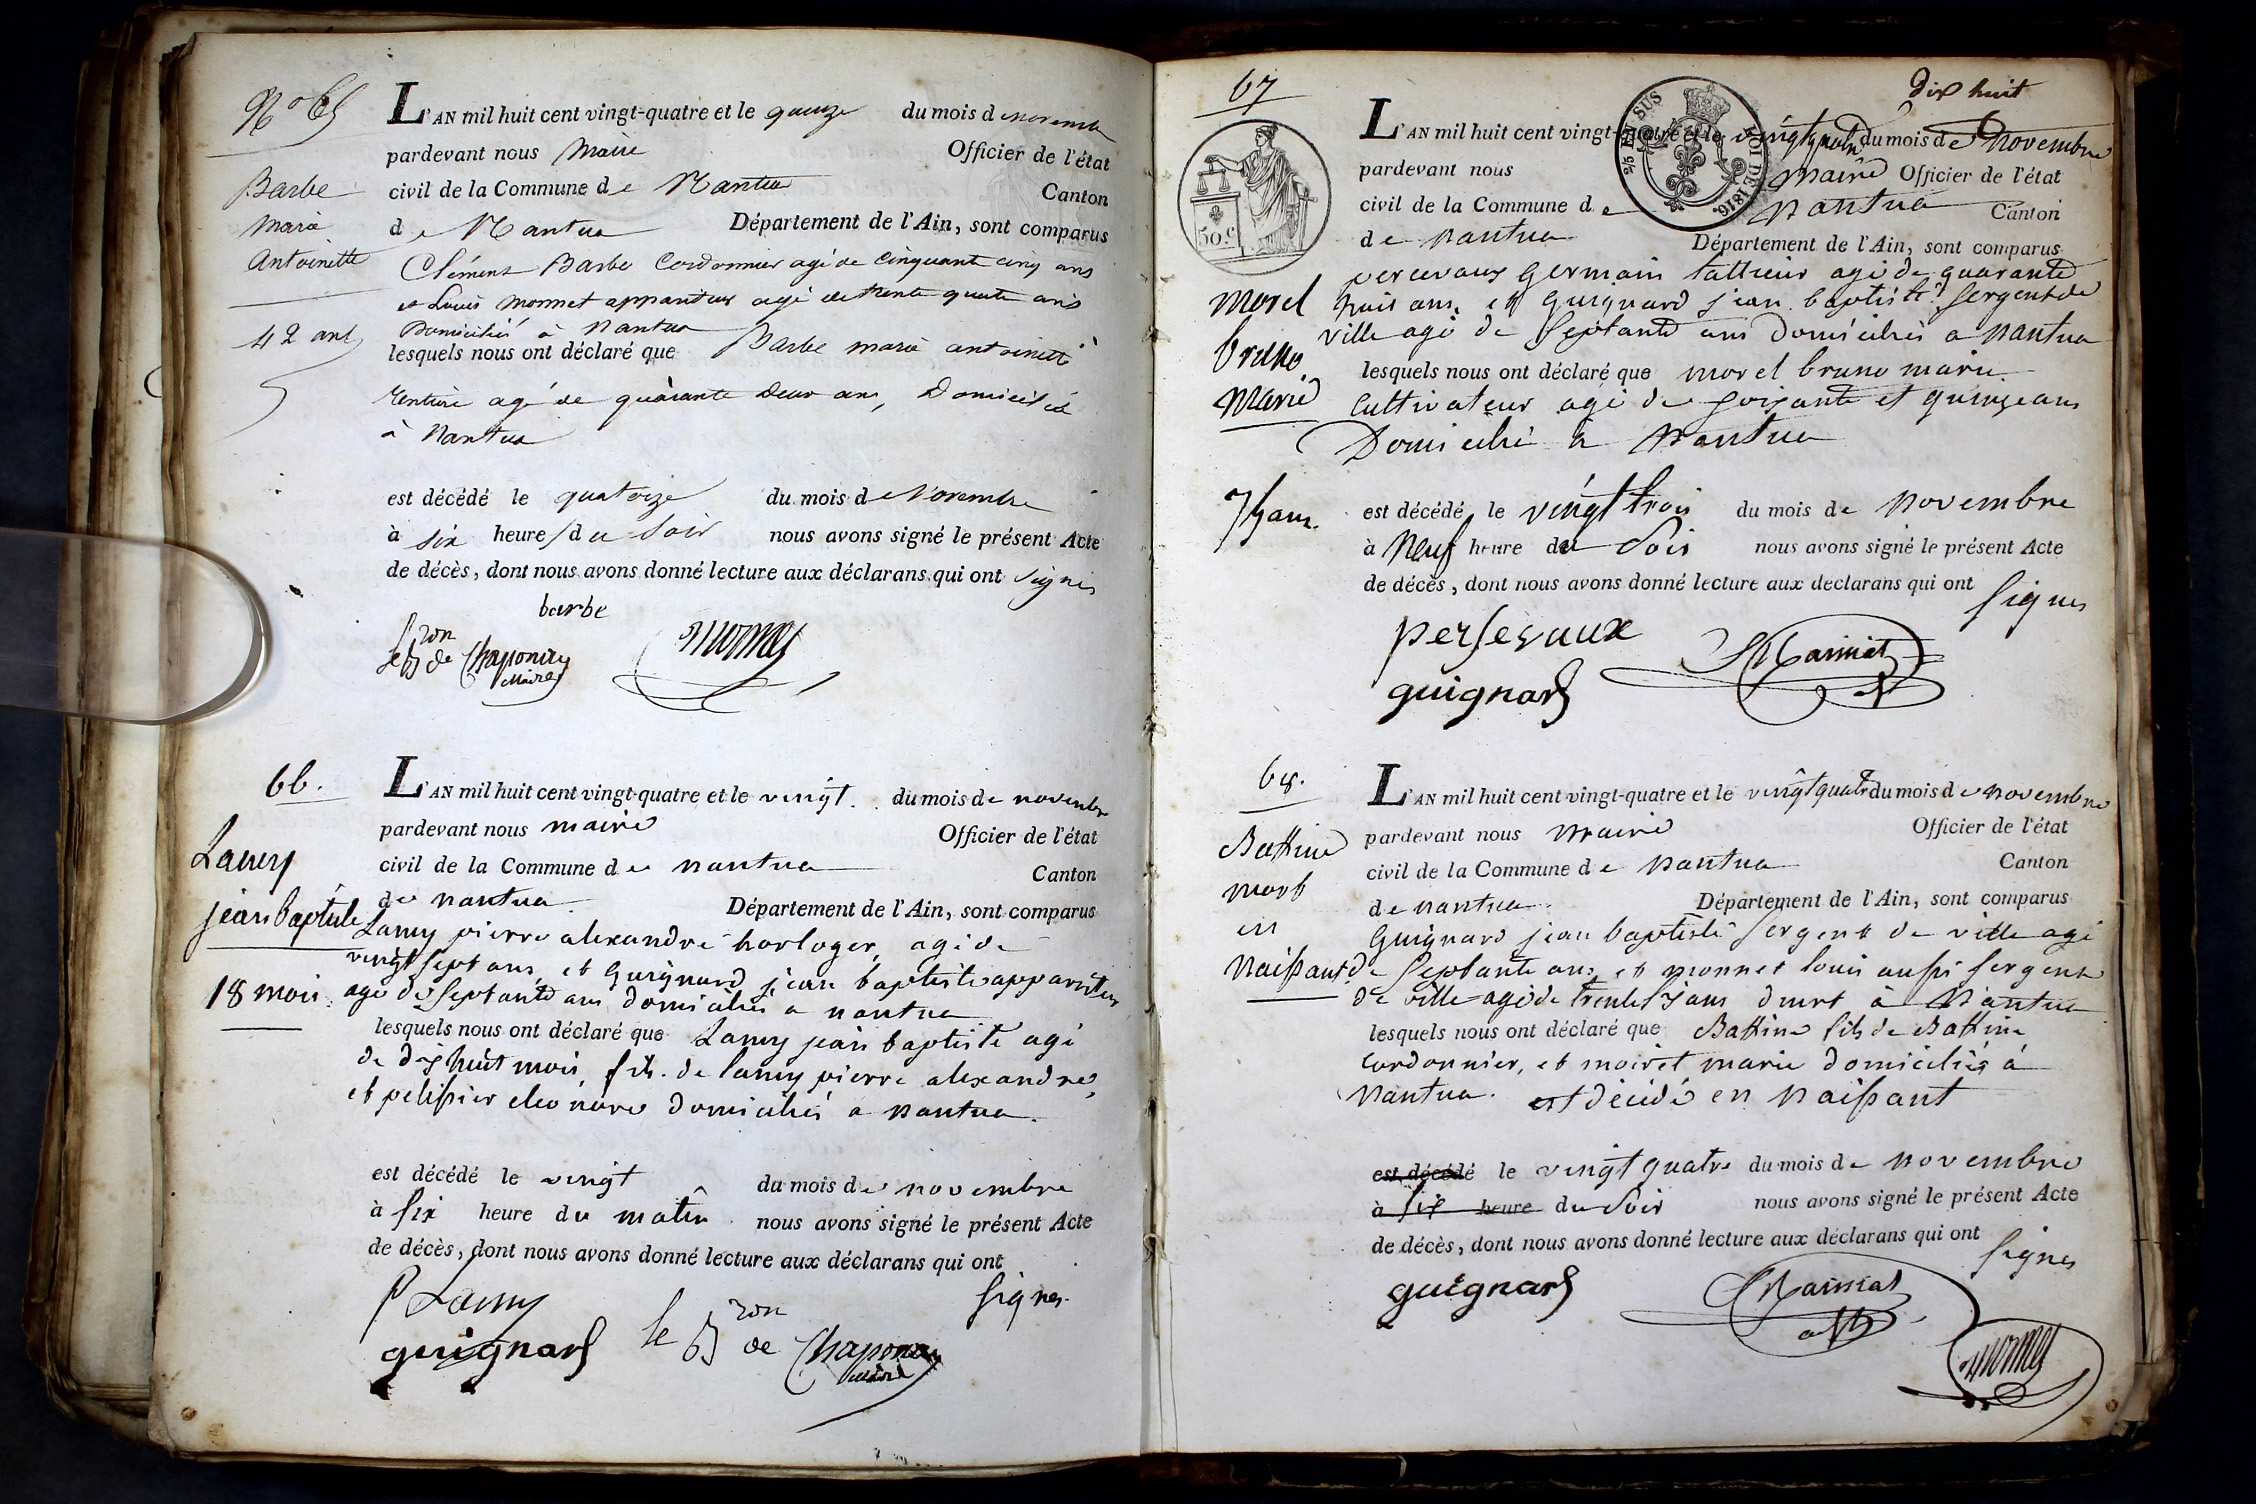 N.o 65
Barbe
Marie
Antoinette
42 ans
L'AN mil huit cent vingt-quatre et le quinze du mois de novembre
pardevant nous Maire Officier de l'état
civil de la Commune de Nantua Canton
de Nantua Département de l'Ain, sont comparus
Clément Barbe Cordonnier agé de Cinquante cinq ans
et Louis Monnet appariteur agé de trente quatre ans
Domiciliés à Nantua
lesquels nous ont déclaré que Barbe marie antoinette
rentière agé de quarante deux ans, Domicilié
à Nantua
est décédé le quatorze du mois de Novembre
à six heures du soir nous avons signé le présent Acte
de décès, dont nous avons donné lecture aux déclarans qui ont signés
barbe
le Bron de Chaponay
Maire
Monnet
66.
Lamy
jean baptiste
18 mois
L'AN mil huit cent vingt-quatre et le vingt du mois de novembre
pardevant nous maire Officier de l'état
civil de la Commune de nantua Canton
de nantua Département de l'Ain, sont comparus
Lamy pierre alexandre horloger, agé de
vingt sept ans, et Guignard jean baptiste appariteur
agé de septante ans domiciliés a nantua
lesquels nous ont déclaré que Lamy jean baptiste agé
de dix huit mois, fils de lamy pierre alexandre,
et pelissier eleonore domiciliés a nantua
est décédé le vingt du mois de novembre
à six heure du matin nous avons signé le présent Acte
de décès, dont nous avons donné lecture aux déclarans qui ont
signes
P Lamy
guignard le Bron de Chaponay
Maire
dix huit
67
50 c.
2/5 EN SUS
LOI DE 1816.
morel
bruno
Marie
75 ans.
L'AN mil huit cent vingt-quatre et le vingt quatre du mois de Novembre
pardevant nous Maire Officier de l'état
civil de la Commune de Nantua Canton
de Nantua Département de l'Ain, sont comparus
percevaux Germain agé de quarante
huit ans, et Guignard jean baptiste sergent de
ville agé de Septante ans Domiciliés a Nantua
lesquels nous ont déclaré que morel bruno marie
Cultivateur agé de soixante et quinze ans
Domicilié à Nantua
est décédé le vingt trois du mois de Novembre
à Neuf heure du Soir nous avons signé le présent Acte
de décès, dont nous avons donné lecture aux declarans qui ont
signes
persevaux
guignard
68.
Battine
mort
en
Naissant
L'AN mil huit cent vingt-quatre et le vingt quatre du mois de novembre
pardevant nous Maire Officier de l'état
civil de la Commune de Nantua Canton
de nantua Département de l'Ain, sont comparus
Guignard jean baptiste Sergent de ville agé
de Septante ans, et monnet louis aussi sergent
de ville agé de trente 5 ans dmrt à Nantua
lesquels nous ont déclaré que Battine fils de Battine
Cordonnier, et moiret marie domiciliés à
Nantua. est décédé en Naissant
est décédé le vingt quatre du mois de novembre
à six heure du Soir nous avons signé le présent Acte
de décès, dont nous avons donné lecture aux déclarans qui ont
signes
guignard
Monnet